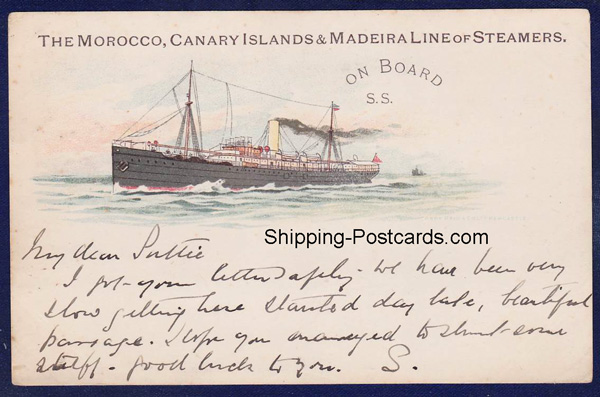 THE MOROCCO, CANARY ISLANDS & MADEIRA LINE OF STEAMERS.
ON BOARD
S.S.
Shipping-Postcards.com
My dear
I got your letter safely - we have been very
slow getting here started day late, beautiful
passage. I hope you managed to some
stuff - good luck to you. S.